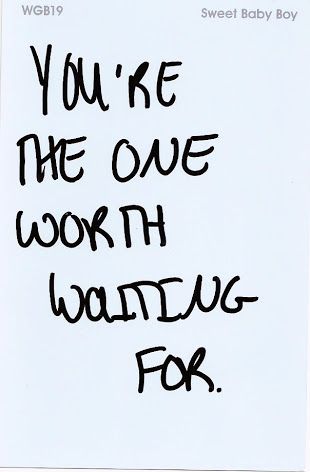 WGB19 Sweet Baby Boy
YOU'RE
THE ONE
WORTH
WAITING
FOR.